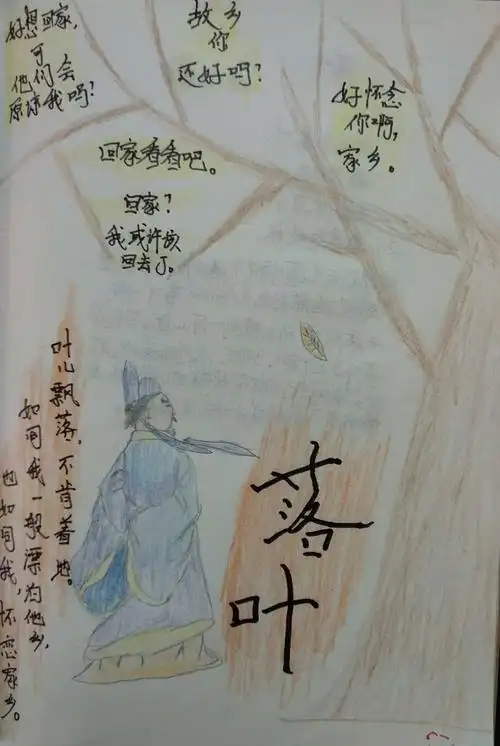 好想回家，
可
他们会
原谅我吗？
故乡
你
还好吗？
好怀念
你啊，
家乡。
回家看看吧。
回家？
我或许该
回去了。
叶儿飘落，不肯着地。
如同我一般漂流他乡，
也如同我，怀恋家乡。
落
叶